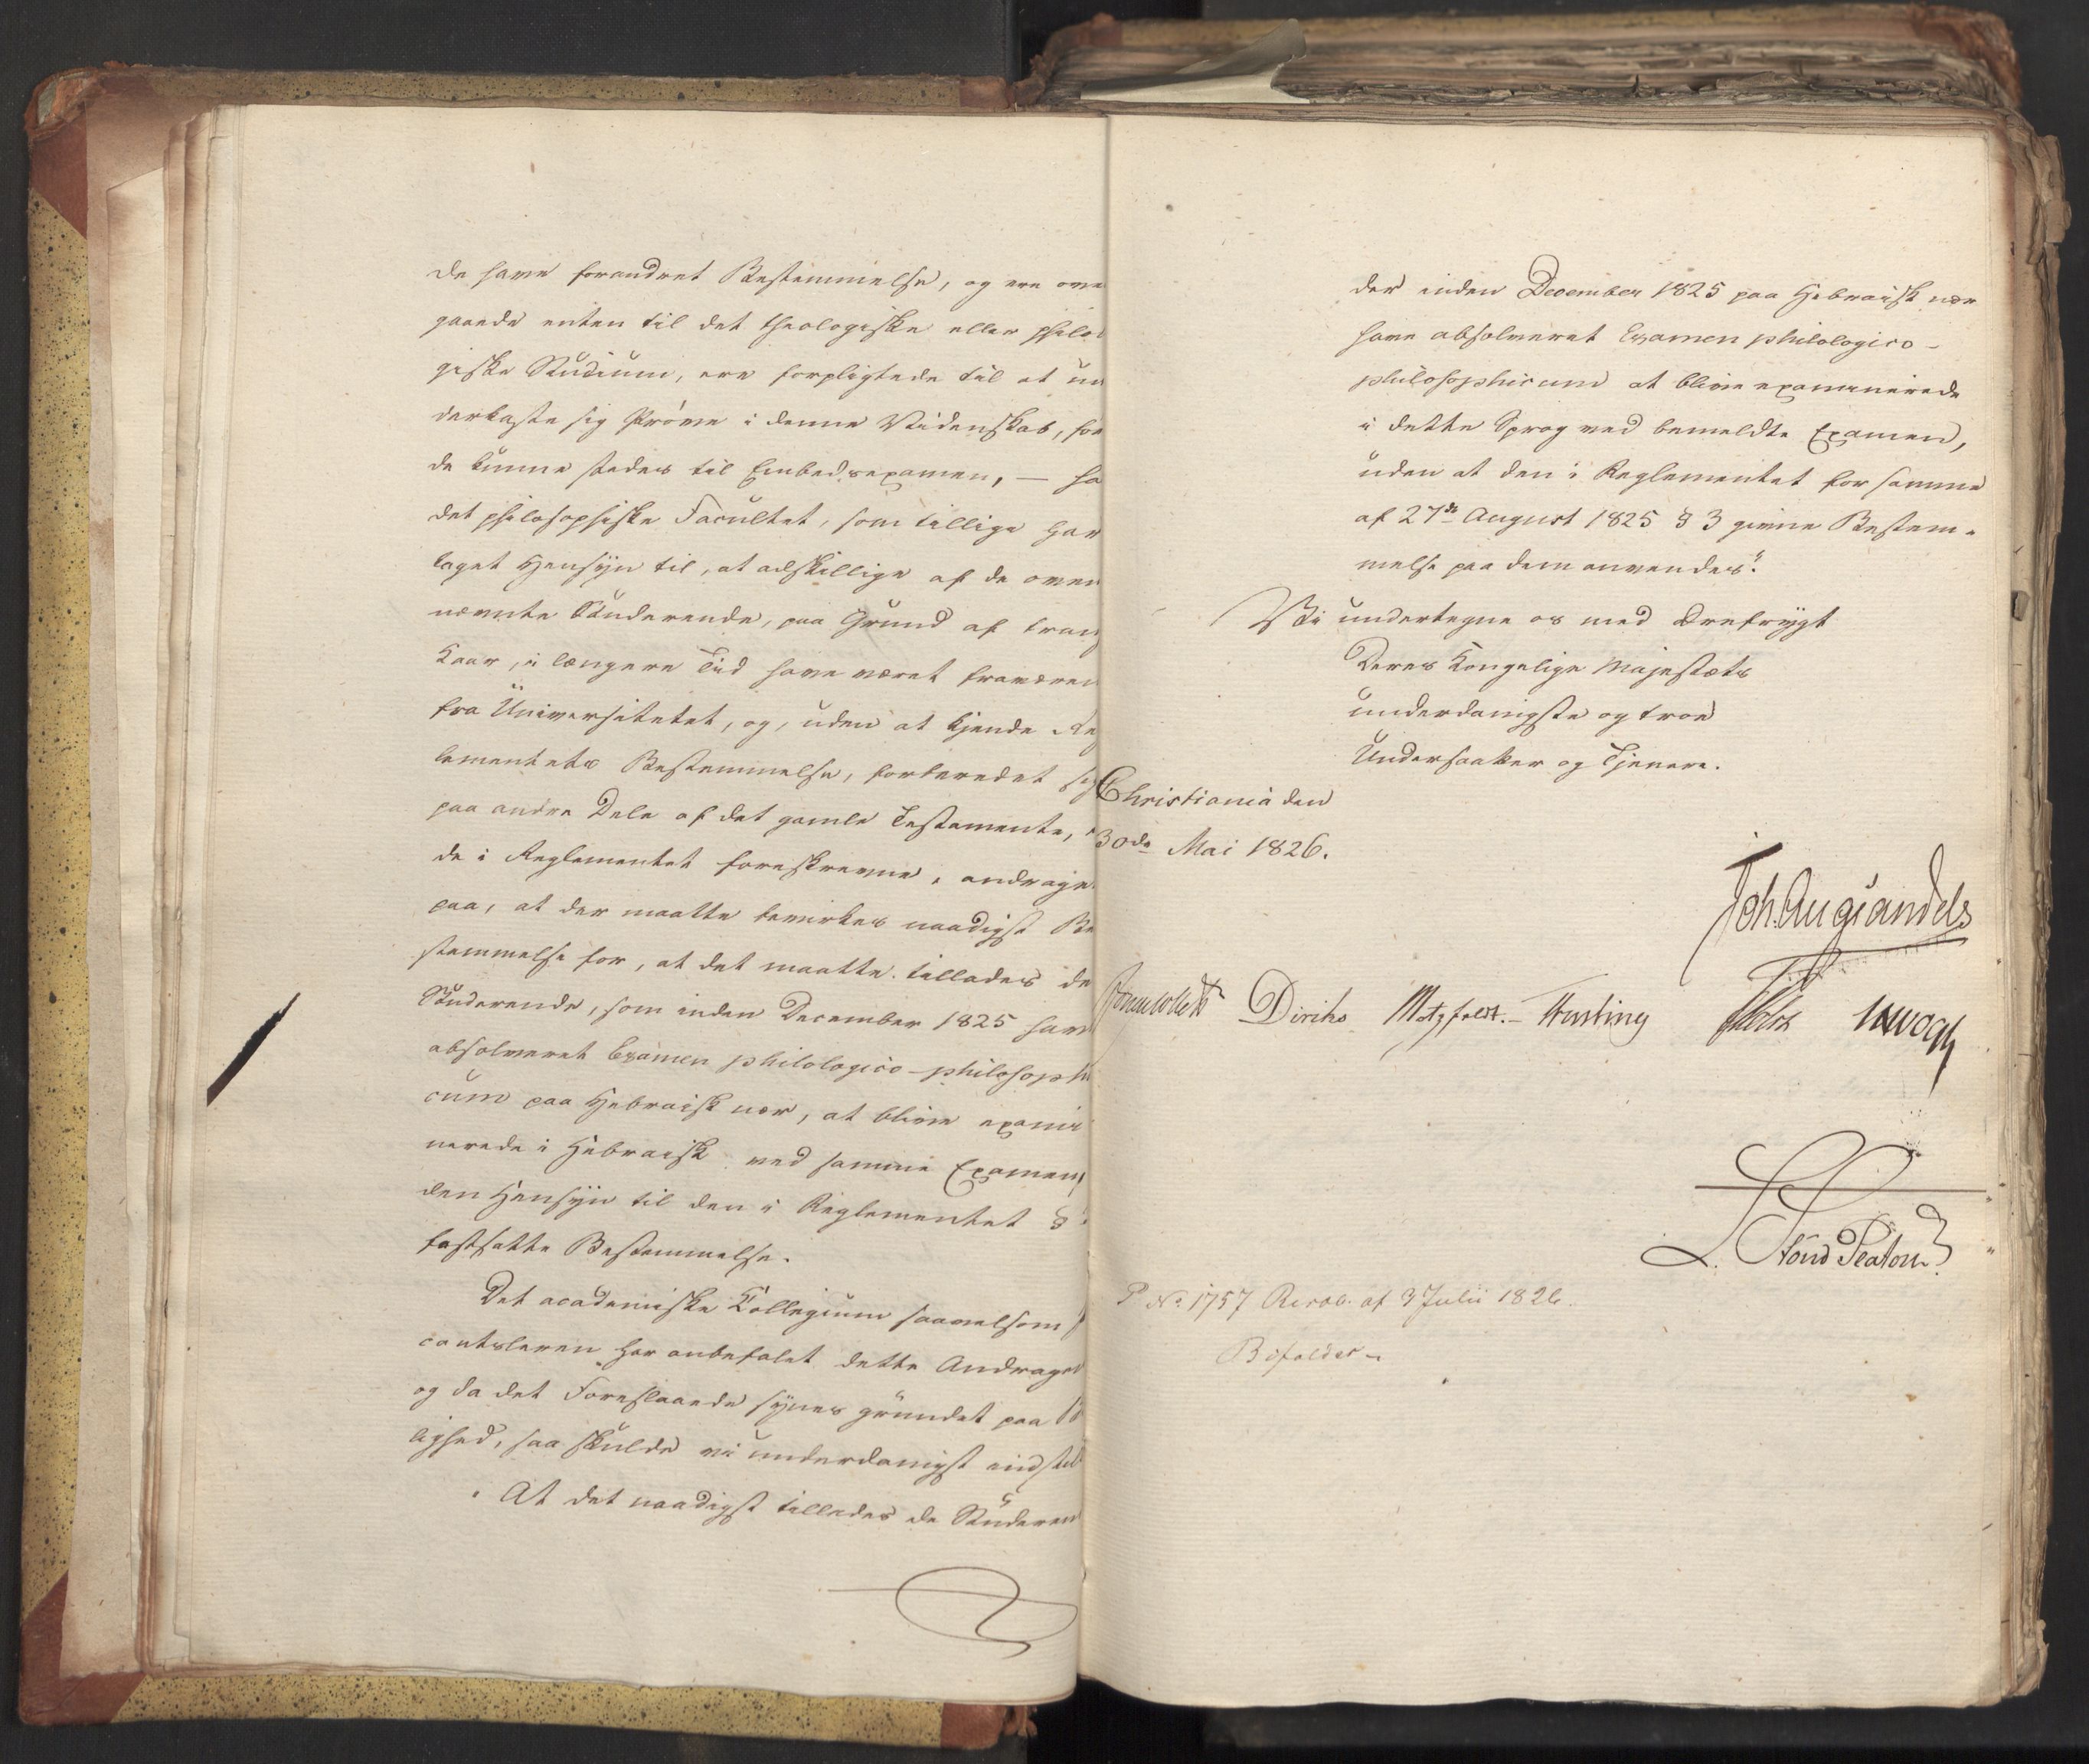 de have forandret Bestemmelse, og ere over
gaaede enten til det theologiske eller philolo
giske Studium, ere forpligtede til at un
derkaste sig Prøve i denne Videnskab, før
de kunne stedes til Embedsexamen, — ha
det philosophiske Facultet, som tillige har
taget Hensyn til, at adskillige af de oven
nævnte Studerende, paa Grund af trang
Kaar, i længere Tid have været fraværen
fra Universitetet, og, uden at kjende Reg
lementets Bestemmelse, forberedet sig
paa andre Dele af det gamle Testamente, e
de i Reglementet foreskrevne, andraget
paa, at der maatte bevirkes naadigst Be
stemmelse for, at det maatte tillades de
Studerende, som inden December 1825 have
absolveret Examen philologico-philosophi
cum paa Hebraisk nær, at blive exami
nerede i Hebraisk ved samme Examen,
den Hensyn til den i Reglementet §
fastsatte Bestemmelse.
Det academiske Collegium saavelsom
cantsleren har anbefalet dette Andragende
og da det Foreslaaede synes grundet paa Bil
lighed, saa skulde vi underdanigst indstill
"At det naadigst tillades de Studeren
der inden December 1825 paa Hebraisk nær
have absolveret Examen philologico-
philosophicum at blive examinerede
i dette Sprog ved bemeldte Examen,
uden at den i Reglementet for samme
af 27de August 1825 § 3 givne Bestem-
melse paa dem anvendes".
Vi undertegne os med Ærefrygt
Deres Kongelige Majestæts
underdanigste og troe
Undersaatter og Tjenere.
Christiania den
30de Mai 1826.
Joh. Aug. Sandels
Diriks Motzfeldt. Hersting Holst
L. Stoud Platou
P No 1757 Resol. af 3 Julii 1826.
Bifaldes